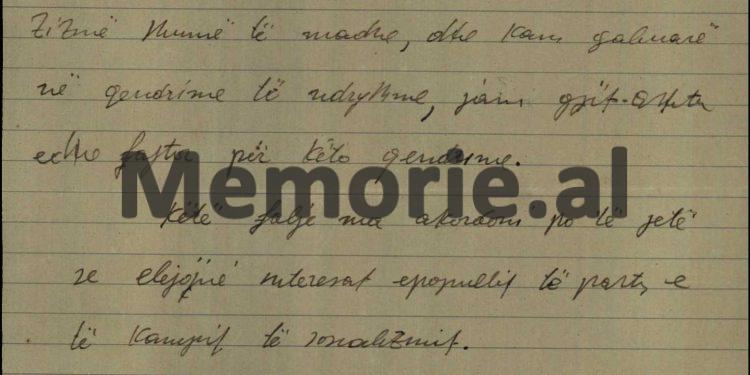 zizmë shumë të madhe, dhe kam gabuarë
në qendrime të ndryshme, jam gjit-ashtu
edhe fajtor për këto qendrime.
Memorie.al
Këtë falje ma akordoni po të jetë
se elejojnë interesat epopullit të partis e
të Kampit të sosializmit.